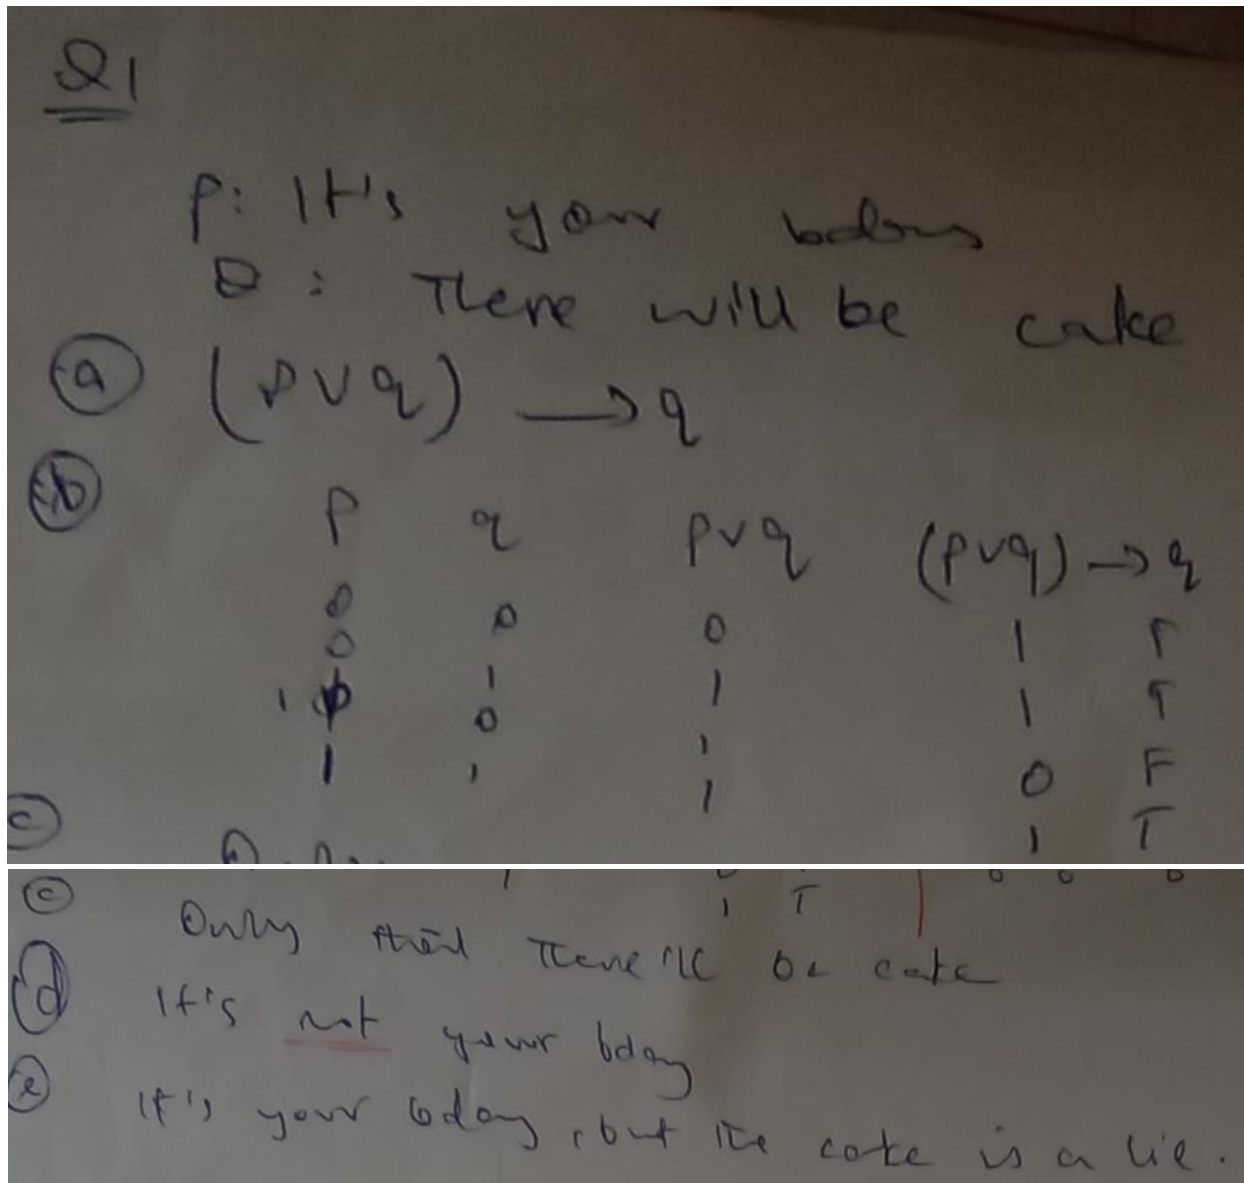 Q1
P: It's your bday
Q: There will be cake
(a) (P∨q) → q
(b) P q p∨q (p∨q) → q
0 0 0 1 T
0 1 1 1 T
1 0 1 0 F
1 1 1 1 T
(c)
(c) Only that There'll be cake
1 T
(d) It's not your bday
(e) It's your bday, but the cake is a lie.